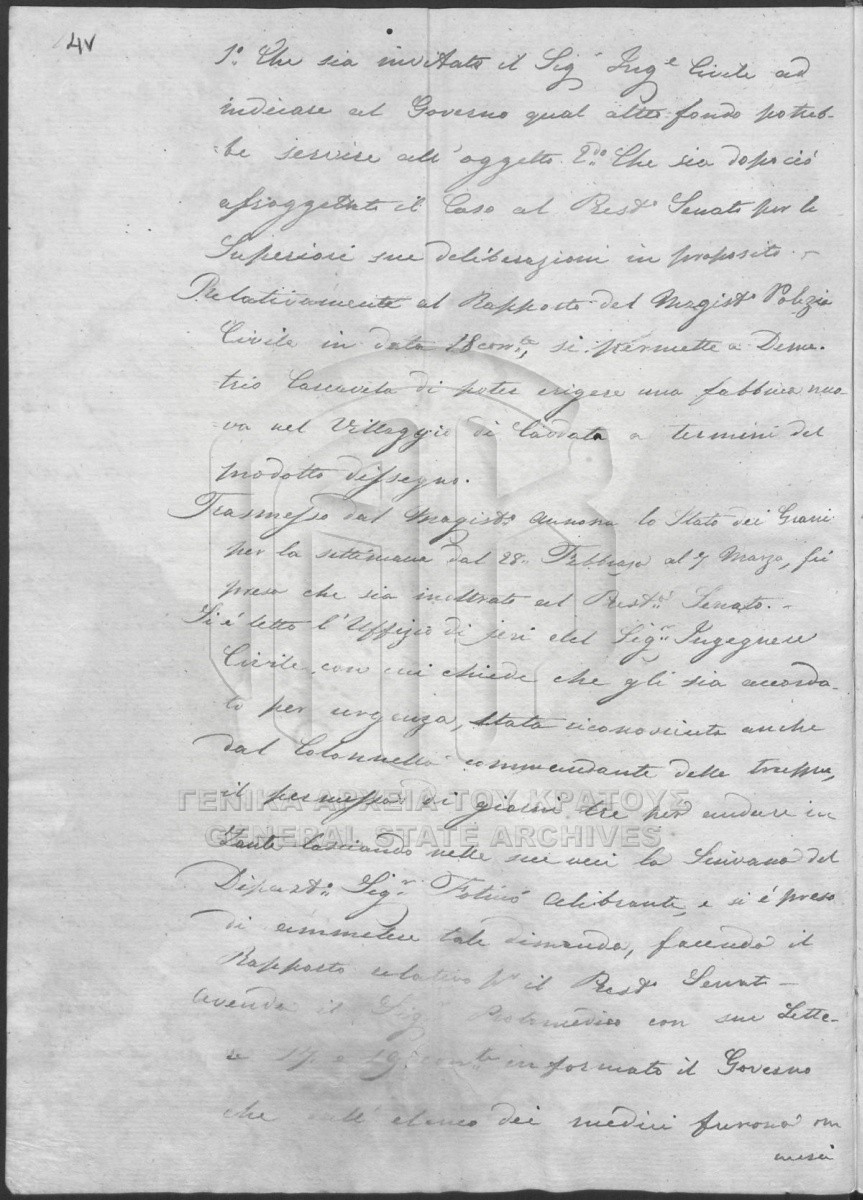 4v
1º Che sia invitato il Sigʳ Ingᵉ Civile ad
indicare al Governo qual altro fondo potreb-
-be servire all'oggetto. 2do Che sia dopociò
assoggettato il Caso al Prestº Senato per le
Superiori sue deliberazioni in proposito. -
Relativamente al Rapporto del Magistº Polizia
Civile in data 18 corrte, si permette a Deme-
trio Cascavela di poter erigere una fabbrica nuo-
-va nel Villaggio di a termini del
prodotto dissegno.
Trasmesso dal Magistº Annona lo Stato dei Grani
per la settimana dal 28 Febbrajo al 7 Marzo, fù
preso che sia inoltrato al Prestº Senato. -
Si è letto l'Uffizio di jeri del Sigʳ Ingegnere
Civile con cui chiede che gli sia accorda-
to per urgenza, stata riconosciuta anche
dal Colonnello commandante delle truppe,
il permesso di giorni tre per andare in
Zante lasciando nelle sue veci lo Scrivano del
Dipartº Sigʳ Celibrante, e si è preso
di ammettere tale dimanda, facendo il
Rapporto relativo pʳ il Prestº Senato -
Avendo il Sigʳ Protomedico con sue Lette-
re 17 e 19 corrte informato il Governo
che dall'elenco dei medici furono om
messi
ΓΕΝΙΚΑ ΑΡΧΕΙΑ ΤΟΥ ΚΡΑΤΟΥΣ
GENERAL STATE ARCHIVES